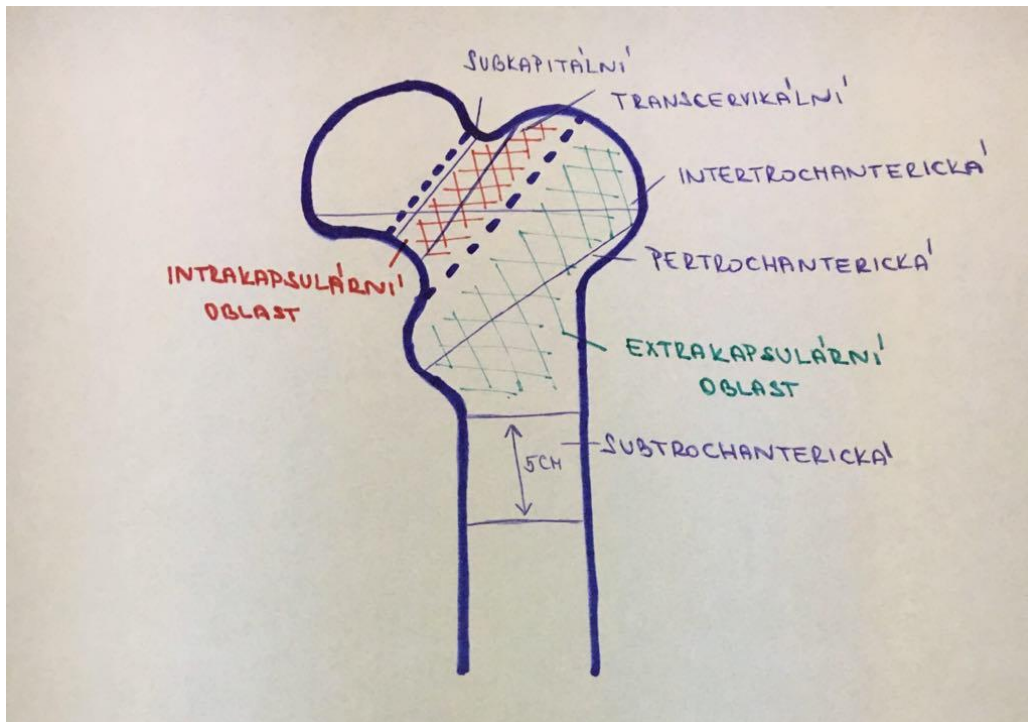 SUBKAPITÁLNÍ
TRANSCERVIKÁLNÍ
INTERTROCHANTERICKÁ
PERTROCHANTERICKÁ
INTRAKAPSULÁRNÍ
OBLAST
EXTRAKAPSULÁRNÍ
OBLAST
SUBTROCHANTERICKÁ
5CM